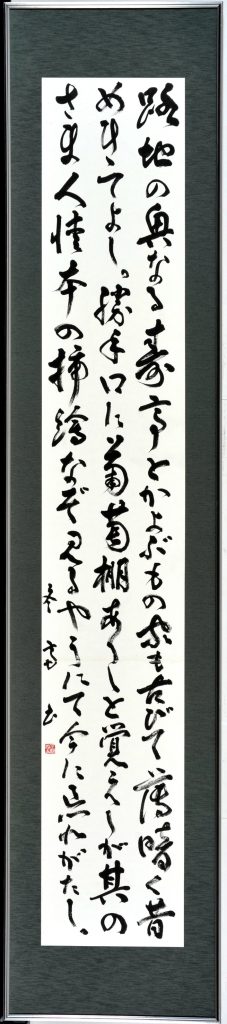 路地の奥なる寿亭とかよぶもの家も古びて薄暗く昔
めきてよし。勝手口に葡萄棚ありしと覚えしが其の
さま人情本の挿絵など見るやうにて今に忘れがたし、
書